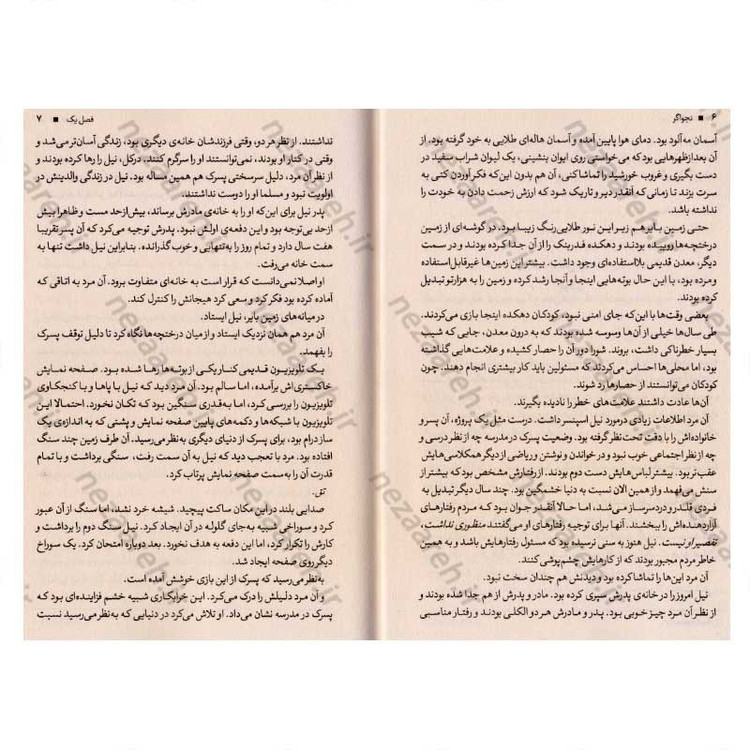 ۶ ■ نجواگر
آسمان مه‌آلود بود. دمای هوا پایین آمده و آسمان هاله‌ای طلایی به خود گرفته بود. از
آن بعدازظهرهایی بود که می‌خواستی روی ایوان بنشینی، یک لیوان شراب سفید در
دست بگیری و غروب خورشید را تماشا کنی، آن هم بدون این‌که فکر آوردن کتی به
سرت بزند تا زمانی که آنقدر دیر و تاریک شود که ارزش زحمت دادن به خودت را
نداشته باشد.
حتی زمین بایر هم زیر این نور طلایی‌رنگ زیبا بود. در گوشه‌ای از زمین
درختچه‌ها روییده بودند و دهکده فدربنک را از آن جدا کرده بودند و در سمت
دیگر، معدن قدیمی بلااستفاده‌ای وجود داشت. بیشتر این زمین‌ها غیرقابل‌استفاده
و مرده بود، با این حال بوته‌هایی اینجا و آنجا رشد کرده و زمین را به هزارتو تبدیل
کرده بودند.
بعضی وقت‌ها با این‌که جای امنی نبود، کودکان دهکده اینجا بازی می‌کردند.
طی سال‌ها خیلی از آن‌ها وسوسه شده بودند که به درون معدن، جایی که شیب
بسیار خطرناکی داشت، بروند. شورا دور آن را حصار کشیده و علامت‌هایی گذاشته
بود، اما محلی‌ها احساس می‌کردند که مسئولین باید کار بیشتری انجام دهند. چون
کودکان می‌توانستند از حصارها رد شوند.
آن‌ها عادت داشتند علامت‌های خطر را نادیده بگیرند.
آن مرد اطلاعات زیادی درمورد نیل اسپنسر داشت. درست مثل یک پروژه، آن پسر و
خانواده‌اش را با دقت تحت‌نظر گرفته بود. وضعیت پسرک در مدرسه چه از نظر درسی و
چه از نظر اجتماعی خوب نبود و در خواندن و نوشتن و ریاضی از دیگر همکلاسی‌هایش
عقب‌تر بود. بیشتر لباس‌هایش دست دوم بودند. از رفتارش مشخص بود که بیشتر از
سنش می‌فهمد و از همین الان نسبت به دنیا خشمگین بود. چند سال دیگر تبدیل به
فردی قلدر و دردسرساز می‌شد، اما حالا آنقدر جوان بود که مردم رفتارهای
آزاردهنده‌اش را ببخشند. آنها برای توجیه رفتارهای او می‌گفتند منظوری نداشت،
تقصیر او نیست. نیل هنوز به سنی نرسیده بود که مسئول رفتارهایش باشد و به همین
خاطر مردم مجبور بودند که از کارهایش چشم‌پوشی کنند.
آن مرد این‌ها را تماشا کرده بود و دیدنش هم چندان سخت نبود.
نیل امروز را در خانه‌ی پدرش سپری کرده بود. مادر و پدرش از هم جدا شده بودند و
از نظر آن مرد چیز خوبی بود. پدر و مادرش هر دو الکلی بودند و رفتار مناسبی
فصل یک ■ ۷
نداشتند. از نظر هر دو، وقتی فرزندشان خانه‌ی دیگری بود، زندگی آسان‌تر می‌شد و
وقتی در کنار او بودند، نمی‌توانستند او را سرگرم کنند. درکل، نیل را رها کرده بودند و
از نظر آن مرد، دلیل سرسختی پسرک هم همین مساله بود. نیل در زندگی والدینش در
اولویت نبود و مسلما او را دوست نداشتند.
پدر نیل برای این‌که او را به خانه‌ی مادرش برساند، بیش‌ازحد مست و ظاهرا بیش
ازحد بی‌توجه بود و این دفعه‌ی اولش نبود. پدرش توجیه می‌کرد که آن پسر تقریبا
هفت سال دارد و تمام روز را به‌تنهایی و خوب گذرانده. بنابراین نیل داشت تنها به
سمت خانه می‌رفت.
او اصلا نمی‌دانست که قرار است به خانه‌ای متفاوت برود. آن مرد به اتاقی که
آماده کرده بود فکر کرد و سعی کرد هیجانش را کنترل کند.
در میانه‌های زمین بایر، نیل ایستاد.
آن مرد هم همان نزدیک ایستاد و از میان درختچه‌ها نگاه کرد تا دلیل توقف پسرک
را بفهمد.
یک تلویزیون قدیمی کنار یکی از بوته‌ها رها شده بود. صفحه نمایش
خاکستری‌اش برآمده، اما سالم بود. آن مرد دید که نیل با پاها و با کنجکاوی
تلویزیون را بررسی کرد، اما به‌قدری سنگین بود که تکان نخورد. احتمالا این
تلویزیون با شبکه‌ها و دکمه‌های پایین صفحه نمایش و پشتی که به اندازه‌ی یک
ساز درام بود، برای پسرک از دنیای دیگری به‌نظر می‌رسید. آن طرف زمین چند سنگ
افتاده بود. مرد با تعجب دید که نیل به آن سمت رفت، سنگی برداشت و با تمام
قدرت آن را به‌سمت صفحه نمایش پرتاب کرد.
تق.
صدایی بلند در این مکان ساکت پیچید. شیشه خرد نشد، اما سنگ از آن عبور
کرد و سوراخی شبیه به‌جای گلوله در آن ایجاد کرد. نیل سنگ دوم را برداشت و
کارش را تکرار کرد، اما این دفعه به هدف نخورد. بعد دوباره امتحان کرد. یک سوراخ
دیگر روی صفحه ایجاد شد.
به‌نظر می‌رسید که پسرک از این بازی خوشش آمده است.
و آن مرد دلیلش را درک می‌کرد. این خرابکاری شبیه خشم فزاینده‌ای بود که
پسرک در مدرسه نشان می‌داد. او تلاش می‌کرد در دنیایی که به‌نظر می‌رسید نسبت
nezaareh.ir